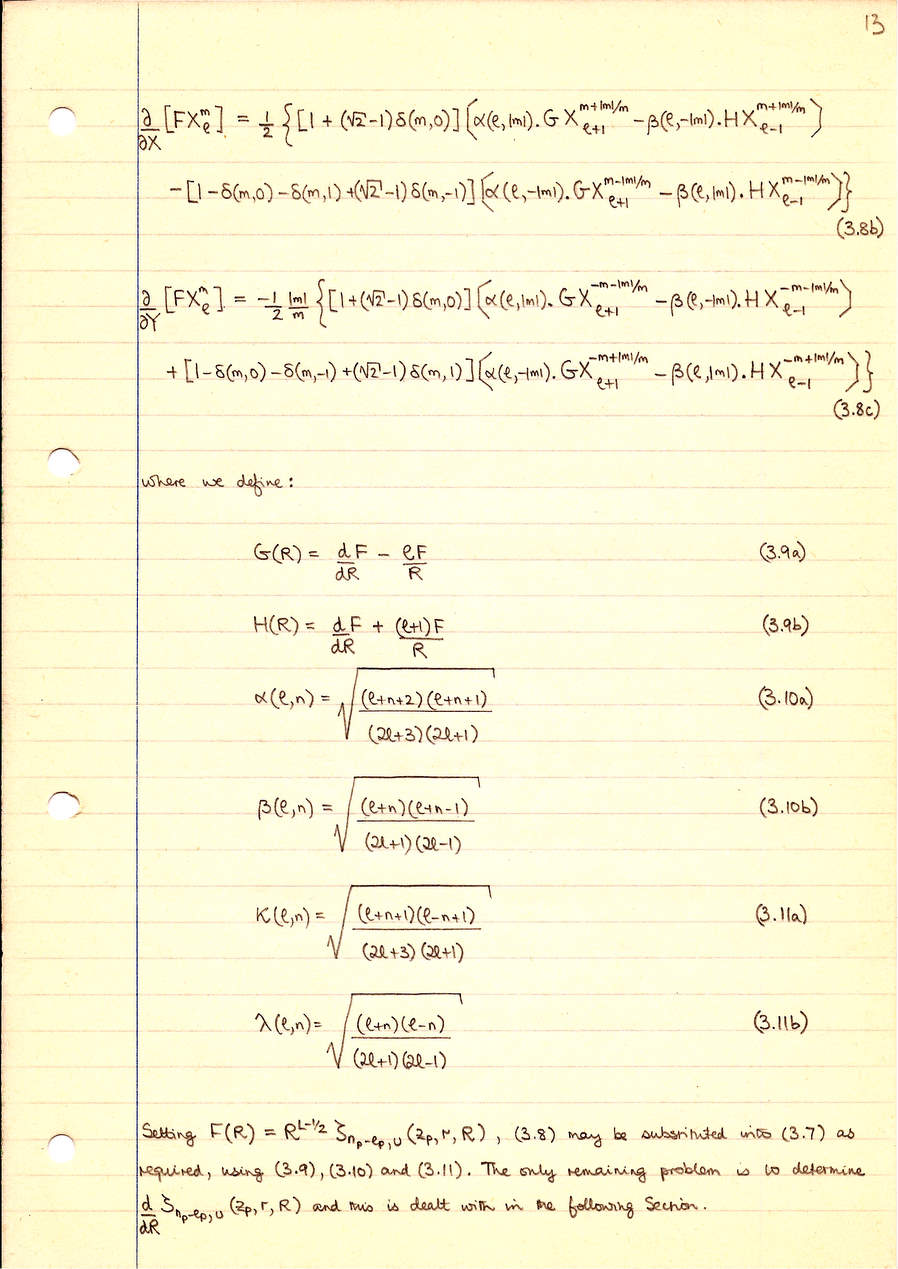 13
∂/∂X [FX_ℓ^m] = 1/2 {[1 + (√2-1)δ(m,0)] (α(ℓ,|m|). G X_{ℓ+1}^{m+|m|/m} - β(ℓ,-|m|). H X_{ℓ-1}^{m+|m|/m})
- [1-δ(m,0) - δ(m,1) + (√2-1) δ(m,-1)] (α(ℓ,-|m|). G X_{ℓ+1}^{m-|m|/m} - β(ℓ,|m|). H X_{ℓ-1}^{m-|m|/m})}
(3.8b)
∂/∂Y [FX_ℓ^m] = -1/2 |m|/m {[1+(√2-1)δ(m,0)] (α(ℓ,|m|). G X_{ℓ+1}^{-m-|m|/m} - β(ℓ,-|m|). H X_{ℓ-1}^{-m-|m|/m})
+ [1-δ(m,0) - δ(m,-1) + (√2-1) δ(m,1)] (α(ℓ,-|m|). G X_{ℓ+1}^{-m+|m|/m} - β(ℓ,|m|). H X_{ℓ-1}^{-m+|m|/m})}
(3.8c)
where we define:
G(R) = dF/dR - ℓF/R (3.9a)
H(R) = dF/dR + (ℓ+1)F/R (3.9b)
α(ℓ,n) = √((ℓ+n+2)(ℓ+n+1)/(2ℓ+3)(2ℓ+1)) (3.10a)
β(ℓ,n) = √((ℓ+n)(ℓ+n-1)/(2ℓ+1)(2ℓ-1)) (3.10b)
K(ℓ,n) = √((ℓ+n+1)(ℓ-n+1)/(2ℓ+3)(2ℓ+1)) (3.11a)
λ(ℓ,n) = √((ℓ+n)(ℓ-n)/(2ℓ+1)(2ℓ-1)) (3.11b)
Setting F(R) = R^{L-1/2} ζ_{n_p-ℓ_p,υ} (z_p, r, R) , (3.8) may be substituted into (3.7) as
required, using (3.9), (3.10) and (3.11). The only remaining problem is to determine
d/dR ζ_{n_p-ℓ_p,υ} (z_p, r, R) and this is dealt with in the following Section.